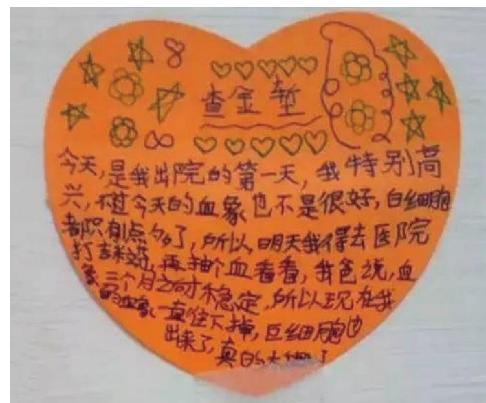 查金堑
今天，是我出院的第一天，我特别高
兴，不过今天的血象也不是很好，白细胞
都只有点多了，所以，明天我得去医院
打 再抽个血看看，我爸说，血
三个月 稳定，所以现在我
的血象一直往下掉，巨细胞也
出来了，真的太 了